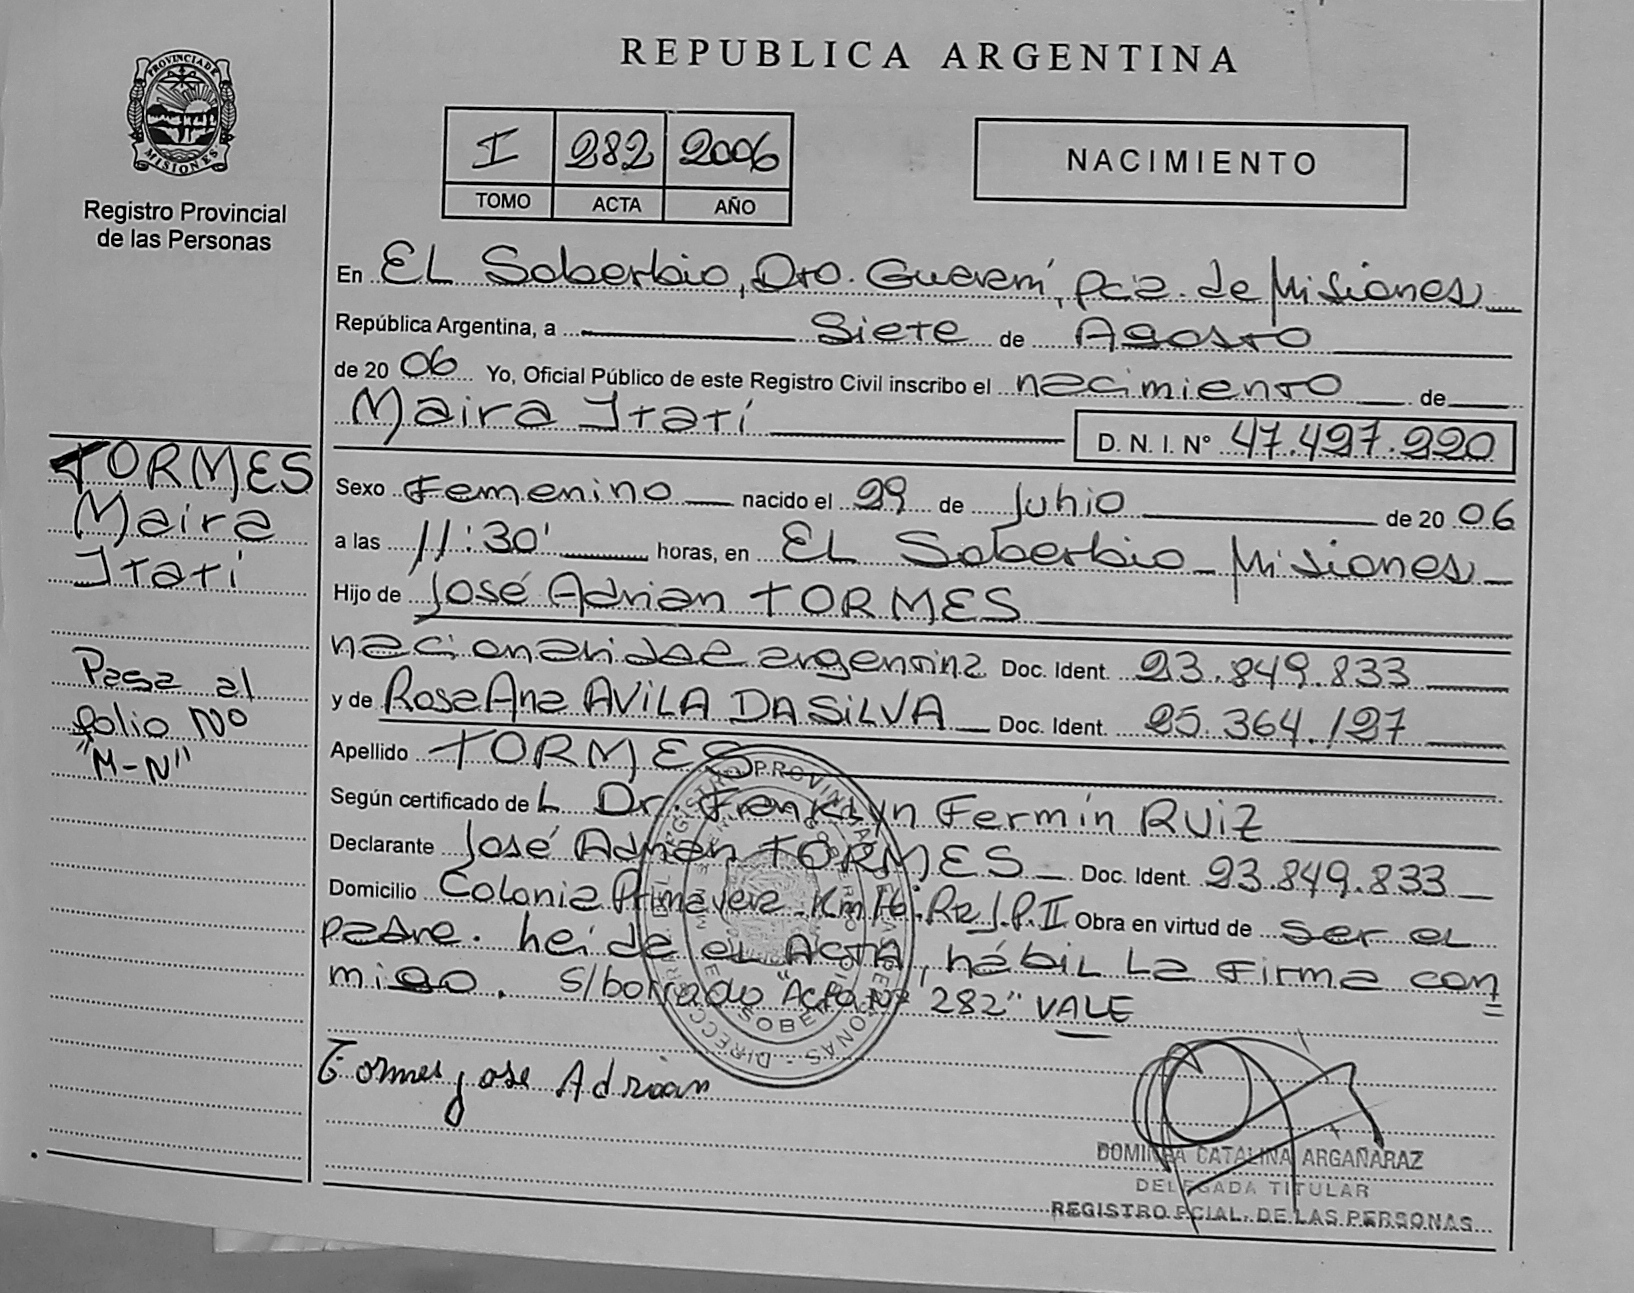 REPUBLICA ARGENTINA
PROVINCIA DE MISIONES
Registro Provincial
de las Personas
I 282 2006
TOMO ACTA AÑO
NACIMIENTO
En EL Soberbio, Dto. Guaraní, pcia. de Misiones
República Argentina, a Siete de Agosto
de 2006 Yo, Oficial Público de este Registro Civil inscribo el nacimiento de
Maira Itatí
D. N. I. Nº 47.497.220
TORMES
Maira
Itatí
Pasa al
folio Nº
"M-N"
Sexo Femenino nacido el 29 de Junio de 2006
a las 11:30' horas, en EL Soberbio - Misiones
Hijo de José Adrian TORMES
nacionalidad argentina Doc. Ident. 23.849.833
y de Rosa Ana AVILA DA SILVA Doc. Ident. 25.364.127
Apellido TORMES
Según certificado de L Dr. Franklyn Fermín RUIZ
Declarante José Adrian TORMES Doc. Ident. 23.849.833
Domicilio Colonia Primavera. Km 16. R. J.P.II Obra en virtud de ser el
padre. Leída el ACTA, hábil La firma con
migo. S/borrado "Acta Nº 282" VALE
Tormes jose Adrian
DOMINGA CATALINA ARGAÑARAZ
DELEGADA TITULAR
REGISTRO PCIAL. DE LAS PERSONAS